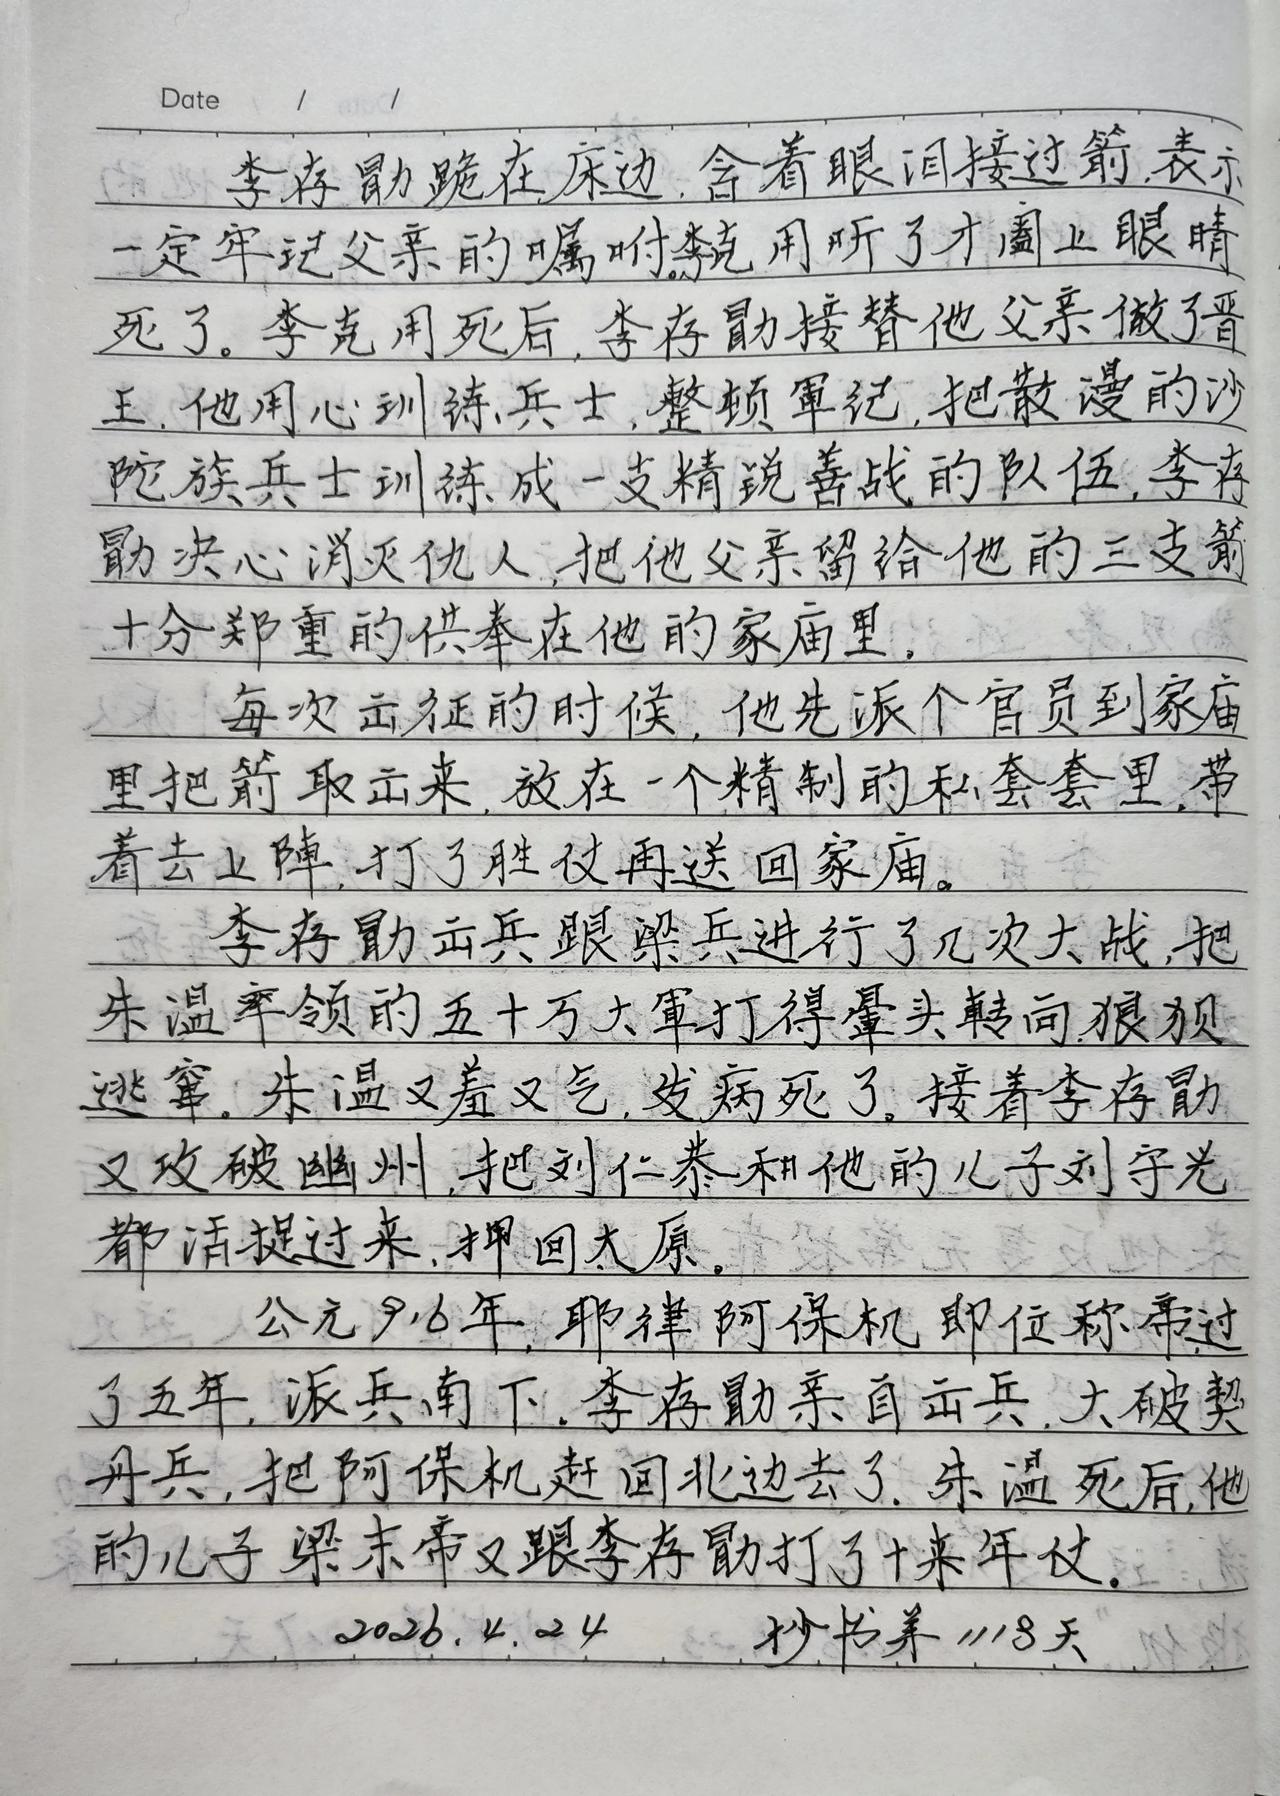 Date / /
李存勖跪在床边,含着眼泪接过箭,表示
一定牢记父亲的嘱咐。李克用听了才阖上眼睛
死了。李克用死后,李存勖接替他父亲做了晋
王,他用心训练兵士,整顿軍纪,把散漫的沙
陀族兵士训练成一支精锐善战的队伍,李存
勖决心消灭仇人,把他父亲留给他的三支箭
十分郑重的供奉在他的家庙里.
每次出征的时候,他先派个官员到家庙
里把箭取出来,放在一个精制的私套套里,带
着去上陣,打了胜仗再送回家庙。
李存勖出兵跟梁兵进行了几次大战,把
朱温率领的五十万大軍打得暈头转向,狼狈
逃窜。朱温又羞又气,发病死了。接着李存勖
又攻破幽州,把刘仁恭和他的儿子刘守光
都活捉过来,押回太原.
公元916年,耶律阿保机即位称帝,过
了五年,派兵南下.李存勖亲自出兵,大破契
丹兵,把阿保机赶回北边去了.朱温死后,他
的儿子梁末帝又跟李存勖打了十来年仗.
2026.4.24 抄书第1118天